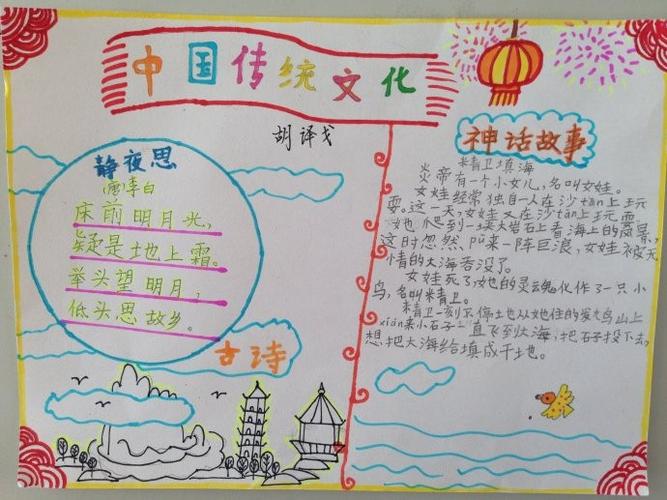 中国传统文化
胡译戈
静夜思
(唐)李白
床前明月光,
疑是地上霜。
举头望明月,
低头思故乡。
古诗
神话故事
精卫填海
炎帝有一个小女儿,名叫女娃。
女娃经常独自一人在沙tān上玩
耍。这一天,女娃又在沙tān上玩耍
她爬到一块大岩石上看海上的风景,
这时忽然,pū来一阵巨浪,女娃被无
情的大海吞没了。
女娃死了,她的灵魂化作了一只小
鸟,名叫精卫。
精卫一刻不停土也从她住的发鸟山上
xián来小石子,直飞到大海,把石子投下去,
想把大海给填成干地。